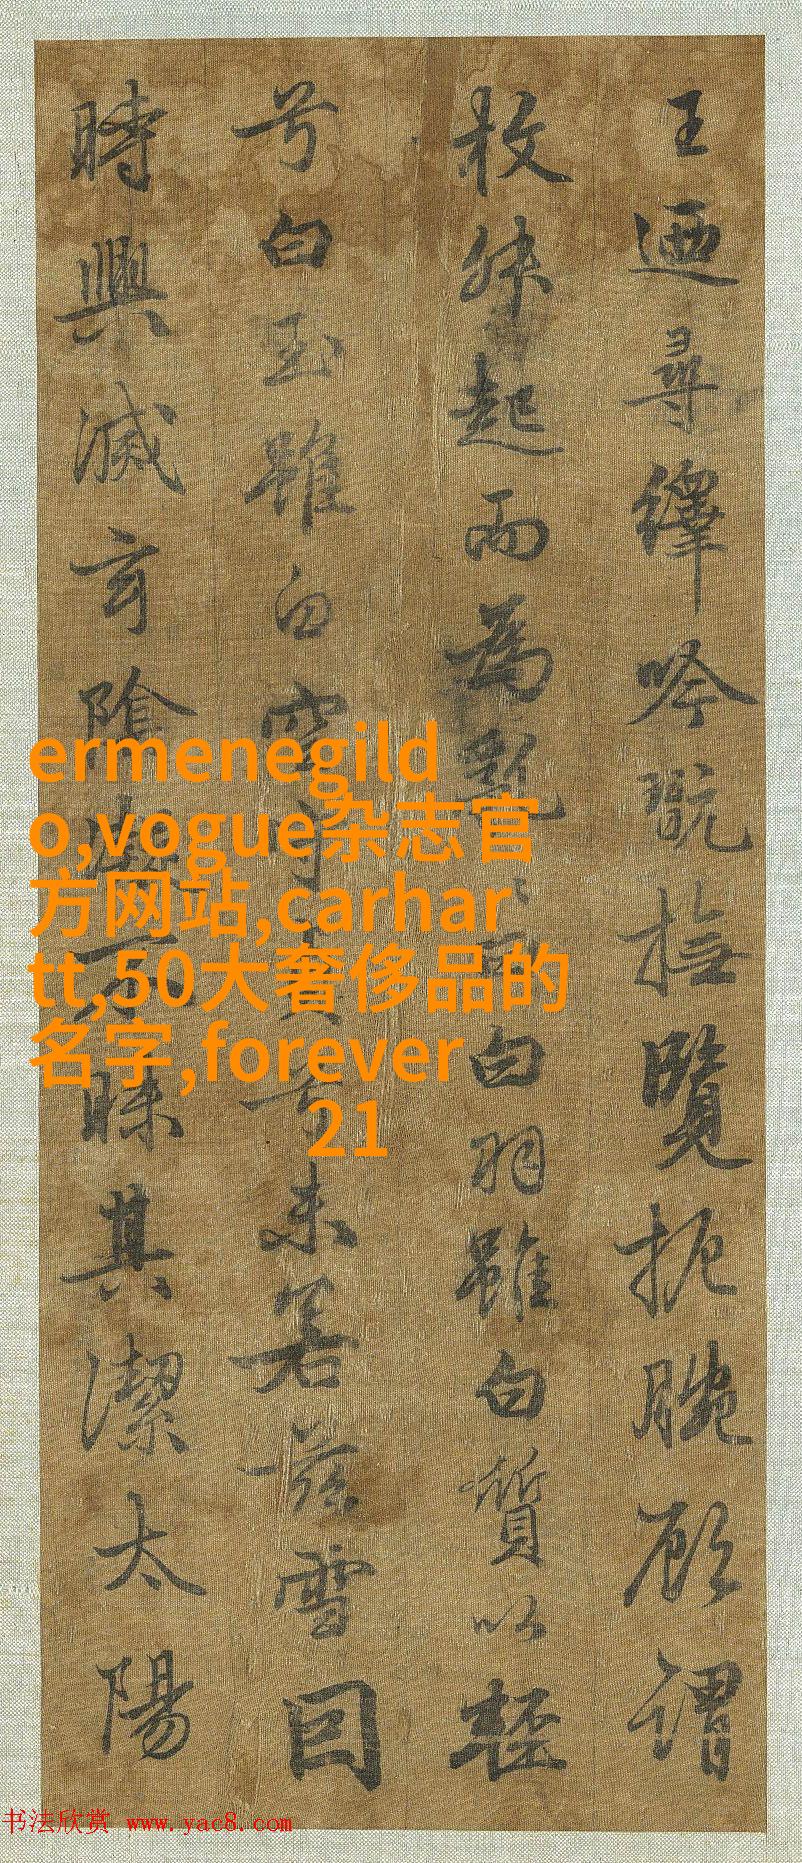 王迺尋繹吟翫撫覽扼腕顧謂
枚叔起而為亂〻曰白羽雖白質以輕
兮白玉雖白空守貞兮未若茲雪因
時興滅玄陰凝不昧其潔太陽
ermenegild
o,vogue杂志官
方网站,carhar
tt,50大奢侈品的
名字,forever
21
书法欣赏 www.yac8.com